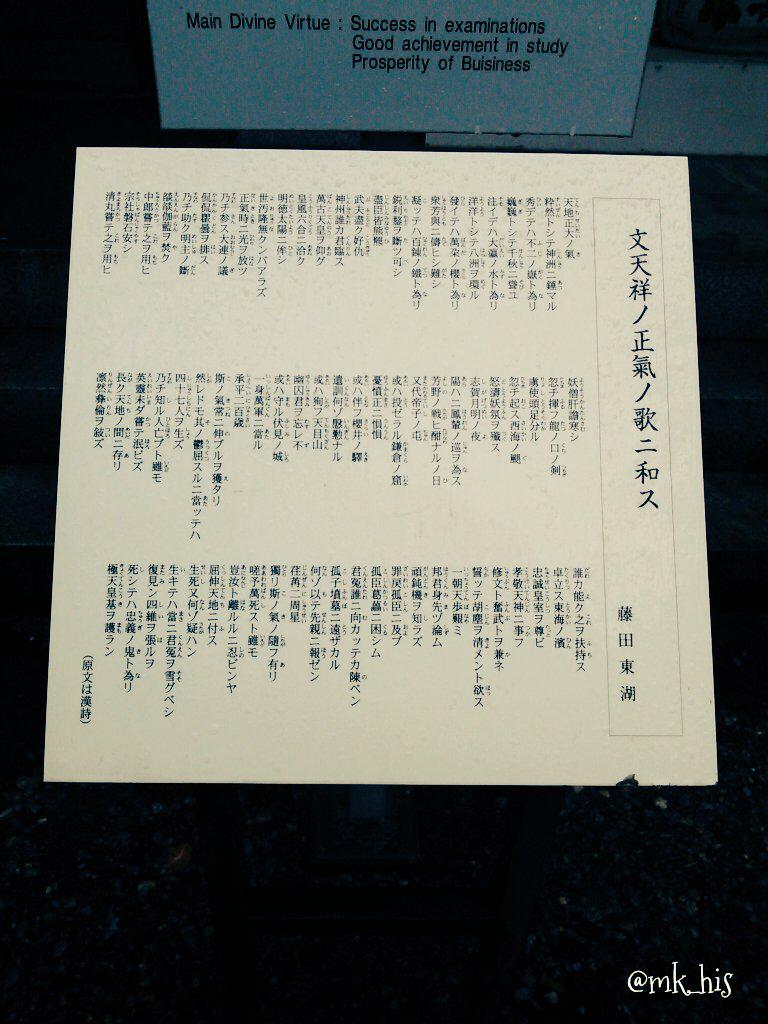 Main Divine Virtue : Success in examinations
Good achievement in study
Prosperity of Buisiness
文天祥ノ正氣ノ歌ニ和ス
藤田東湖
天地正大ノ氣
粹然トシテ神洲ニ鍾マル
秀デテハ不二ノ嶽ト為リ
巍巍トシテ千秋ニ聳ユ
注イデハ大瀛ノ水ト為リ
洋洋トシテ八洲ヲ環ル
發イテハ萬朶ノ櫻ト為リ
衆芳與ニ儔ヒシ難シ
凝ッテハ百錬ノ鐵ト為リ
鋭利鍪ヲ斷ツ可シ
盡臣皆熊羆
武夫盡ク好仇
神州誰カ君臨ス
萬古天皇ヲ仰グ
皇風六合ニ洽ク
明徳太陽ニ侔シ
世汚隆無クンバアラズ
正氣時ニ光ヲ放ツ
乃チ参ス大連ノ議
侃侃瞿曇ヲ排ス
乃チ助ク明主ノ斷
燄燄伽藍ヲ焚ク
中郎嘗テ之ヲ用ヒ
宗社磐石安シ
清丸嘗テ之ヲ用ヒ
妖僧肝膽寒シ
忽チ揮フ龍ノ口ノ剣
虜使頭足分ル
忽チ起ス西海ノ颶
怒濤妖氛ヲ殱ス
志賀月明ノ夜
陽ハニ鳳輦ノ巡ヲ為ス
芳野ノ戰ヒ酣ナルノ日
又代帝子ノ屯
或ハ投ゼラル鎌倉ノ窟
憂憤正ニ愪愪
或ハ伴フ櫻井ノ驛
遺訓何ゾ慇懃ナル
或ハ狥フ天目山
幽囚君ヲ忘レ不
或ハ守ル伏見ノ城
一身萬軍ニ當ル
承平二百歳
斯ノ氣常ニ伸ブルヲ獲タリ
然レドモ其ノ鬱屈スルニ當ッテハ
四十七人ヲ生ズ
乃チ知ル人亡ブト雖モ
英靈未ダ嘗テ泯ビズ
長ク天地ノ間ニ存リ
凛然彝倫ヲ敍ズ
誰カ能ク之ヲ扶持ス
卓立ス東海ノ濱
忠誠皇室ヲ尊ビ
孝敬天神ニ事フ
修文ト奮武トヲ兼ネ
誓ッテ胡塵ヲ清メント欲ス
一朝天歩艱ミ
邦君身先ヅ淪ム
頑鈍機ヲ知ラズ
罪戻孤臣ニ及ブ
孤臣葛藟ニ困シム
君冤誰ニ向カッテカ陳ベン
孤子墳墓ニ遠ザカル
何ゾ以テ先親ニ報ゼン
荏苒二周星
獨リ斯ノ氣ノ隨フ有リ
嗟予萬死スト雖モ
豈汝ト離ルルニ忍ビンヤ
屈伸天地ニ付ス
生死又何ゾ疑ハン
生キテハ當ニ君冤ヲ雪グベシ
復見ン四維ヲ張ルヲ
死シテハ忠義ノ鬼ト為リ
極天皇基ヲ護ラン
(原文は漢詩)
@mk_his